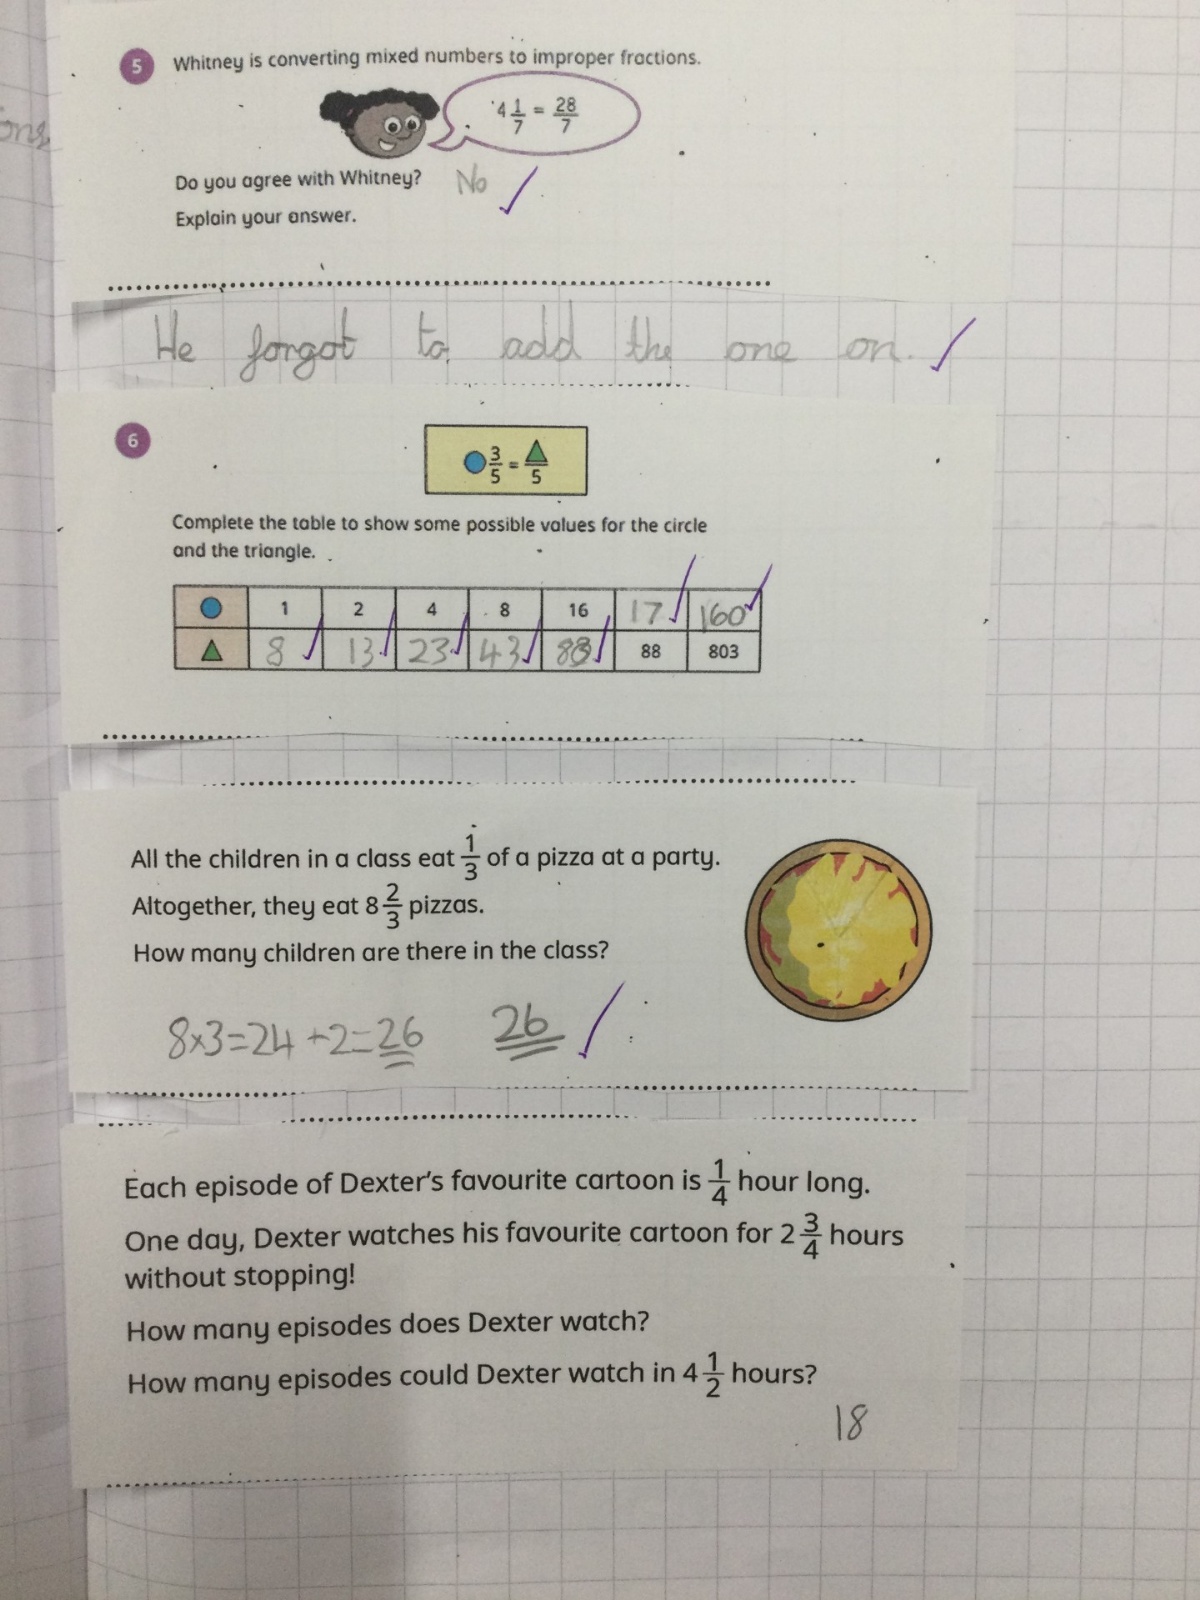 ons
5 Whitney is converting mixed numbers to improper fractions.
4 1/7 = 28/7
Do you agree with Whitney? No
Explain your answer.
He forgot to add the one on.
6
3/5 = /5
Complete the table to show some possible values for the circle
and the triangle.
1 2 4 8 16 17 160
8 13 23 43 83 88 803
All the children in a class eat 1/3 of a pizza at a party.
Altogether, they eat 8 2/3 pizzas.
How many children are there in the class?
8x3=24 +2=26 26
Each episode of Dexter's favourite cartoon is 1/4 hour long.
One day, Dexter watches his favourite cartoon for 2 3/4 hours
without stopping!
How many episodes does Dexter watch?
How many episodes could Dexter watch in 4 1/2 hours?
18